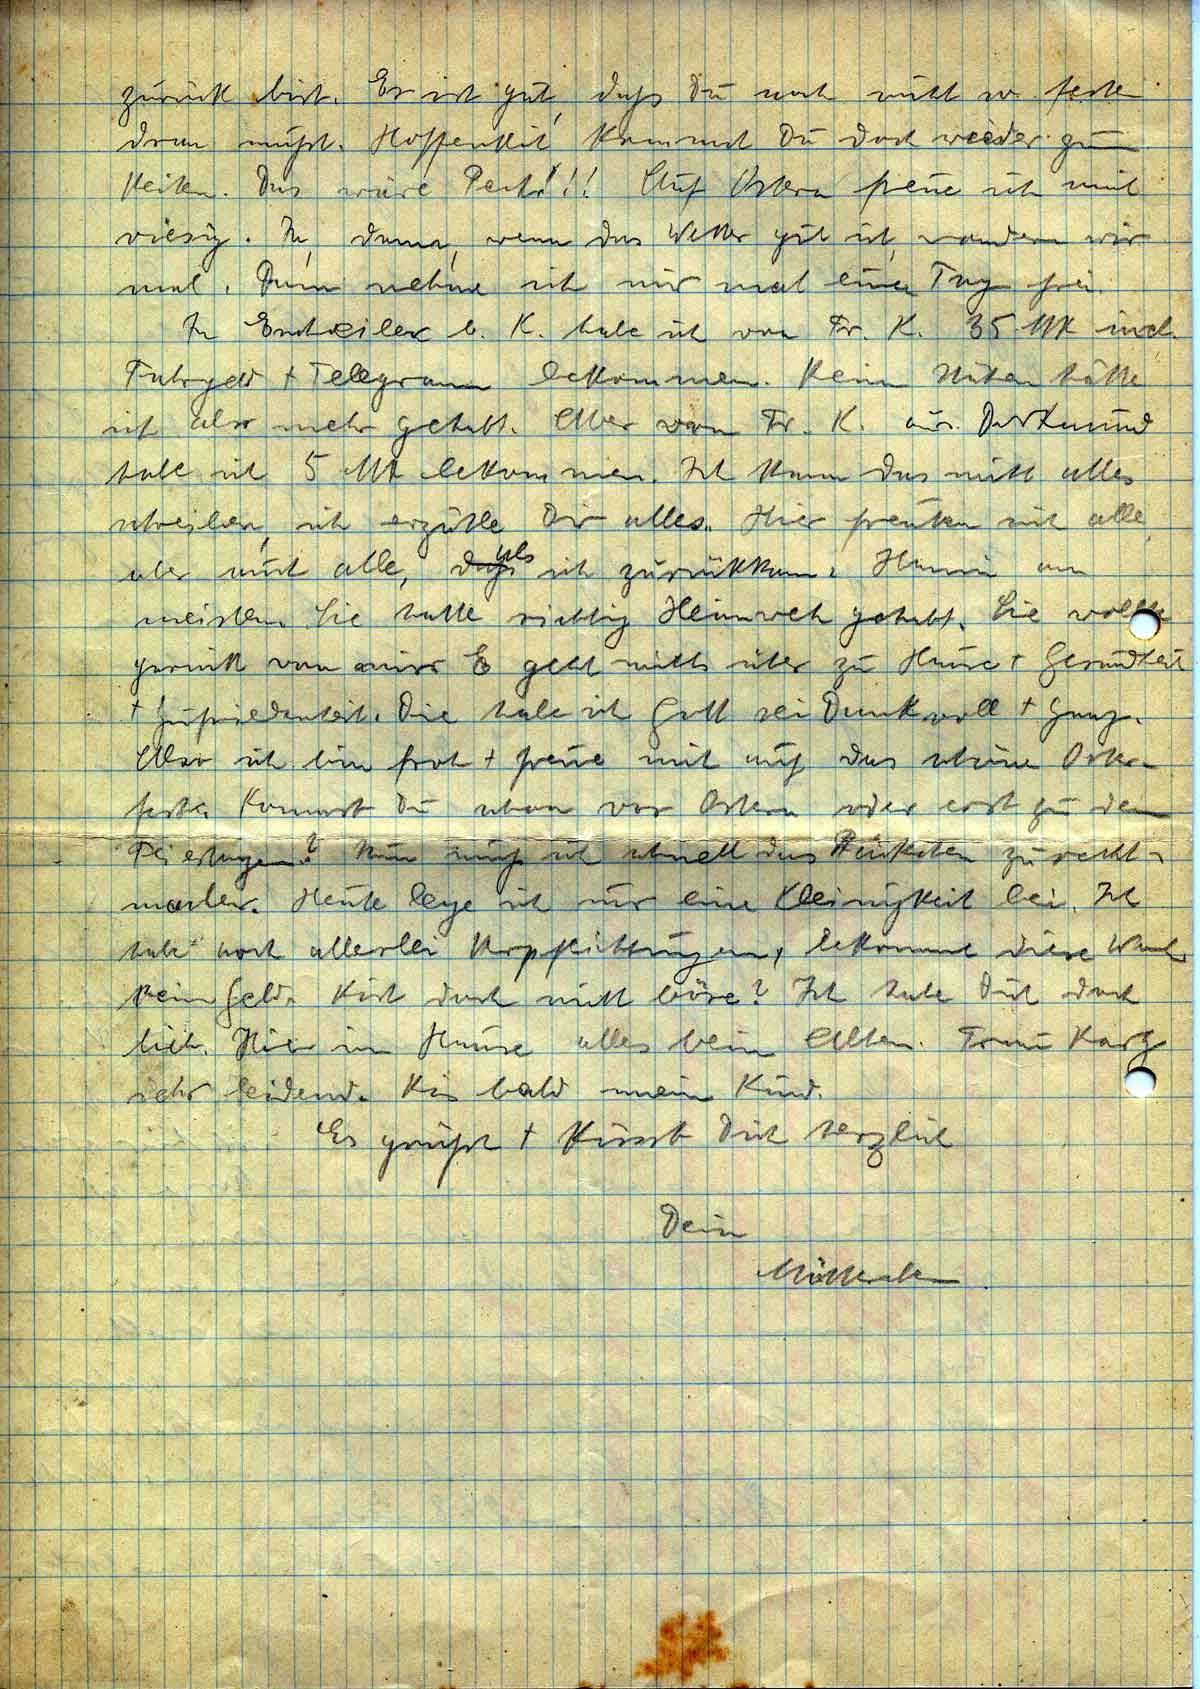 zurück bist. Es ist gut, daß Du noch nicht so feste
dran mußt. Hoffentlich kommst Du doch wieder zum
Reiten. Das wäre Pech!!! Auf Ostern freue ich mich
riesig. Ja, dann, wenn das Wetter gut ist, wandern wir
mal. Dann nehme ich mir mal einen Tag frei.
In b. K. habe ich von Fr. K. 35 MK incl.
Fahrgeld + Telegramm bekommen. Beim Nähen hätte
ich also mehr gehabt. Aber von Fr. K. aus Dortmund
habe ich 5 MK bekommen. Ich kann das nicht alles
schreiben, ich erzähle Dir alles. Hier freuten sich alle,
aber auch alle, daß als ich zurückkam. Hanni am
meisten. Sie hatte richtig Heimweh gehabt. Sie wollte
zurück von mir. Es geht nichts über zu Hause + Gesundheit
+ Zufriedenheit. Die habe ich Gott sei Dank voll + ganz.
Also ich bin froh + freue mich auf das schöne Oster-
fest. Kommst Du schon vor Ostern oder erst zu den
Feiertagen? Nun muß ich schnell das Päckchen zurecht-
machen. Heute lege ich nur eine Kleinigkeit bei. Ich
habe noch allerlei Verpflichtungen, bekomme diese Woche
kein Geld. Bist doch nicht böse? Ich habe Dich doch
lieb. Hier im Hause alles beim Alten. Frau
sehr leidend. Bis bald mein Kind.
Es grüßt + küsst Dich herzlich
Dein
Mütterchen